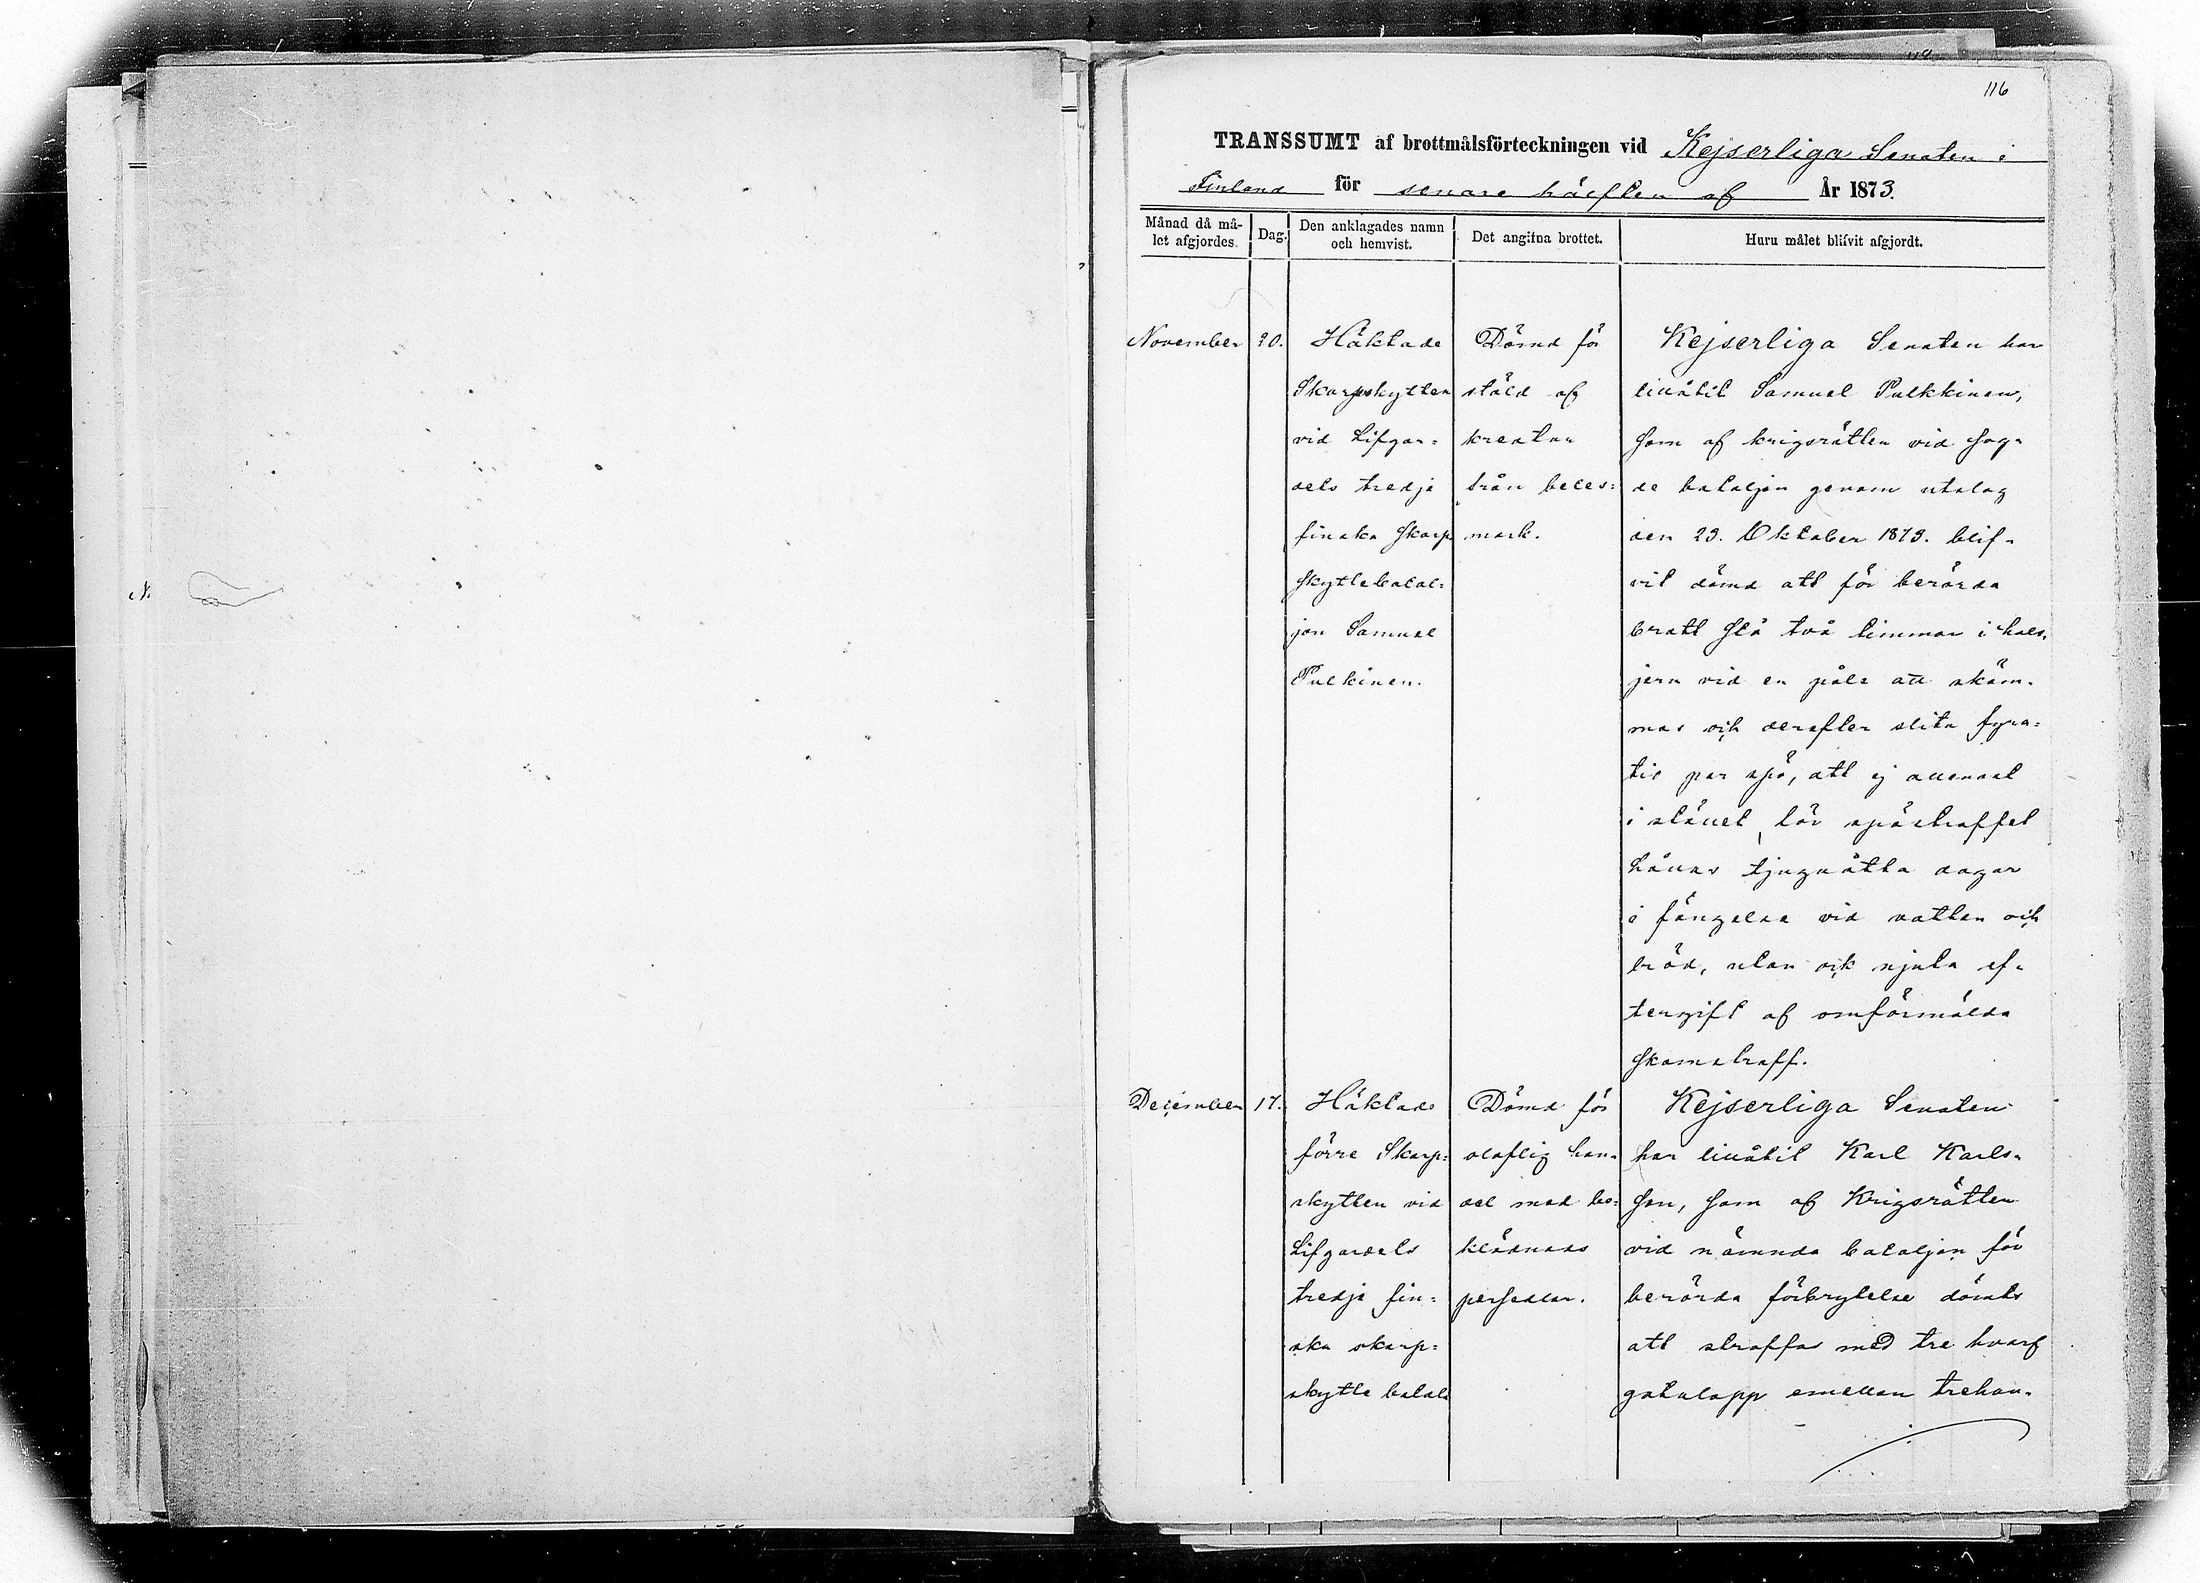 116
TRANSSUMT af brottmålsförteckningen vid Kejserliga Senaten i
Finland för senare hälften af År 1873.
Månad då må-
let afgjordes.
Dag.
Den anklagades namn
och hemvist.
Det angifna brottet.
Huru målet blifvit afgjordt.
November
20.
Häktade
Skarpskytten
vid Lifgar=
dets tredje
finska Skarp
skyttebatal=
jon Samuel
Pulkinen.
Dömd för
stöld af
kreatur
från betes=
mark.
Kejserliga Senaten har
tillåtit Samuel Pulkkinen,
som af krigsrätten vid sag-
de bataljon genom utslag
den 23. Oktober 1873. blif-
vit dömd att för berörda
brott stå två timmar i hals-
jern vid en påle att skäm-
mas och derefter slita fyra=
tio par spö, att ej allenast
i stället för spöstraffet
hållas tjuguåtta dagar
i fängelse vid vatten och
bröd, utan ock njuta ef-
tergift af omförmälda
skamstraff.
December
17.
Häktade
förre Skarp=
skytten vid
Lifgardets
tredje fin=
ska skarp=
skytte batal=
Dömd för
olaflig han-
del med be=
klädnads
persedlar.
Kejserliga Senaten
har tillåtit Karl Karls-
son, som af Krigsrätten
vid nämnda bataljon för
berörda förbrytelse dömts
att straffas med tre hvarf
gatulopp emellan trehun-